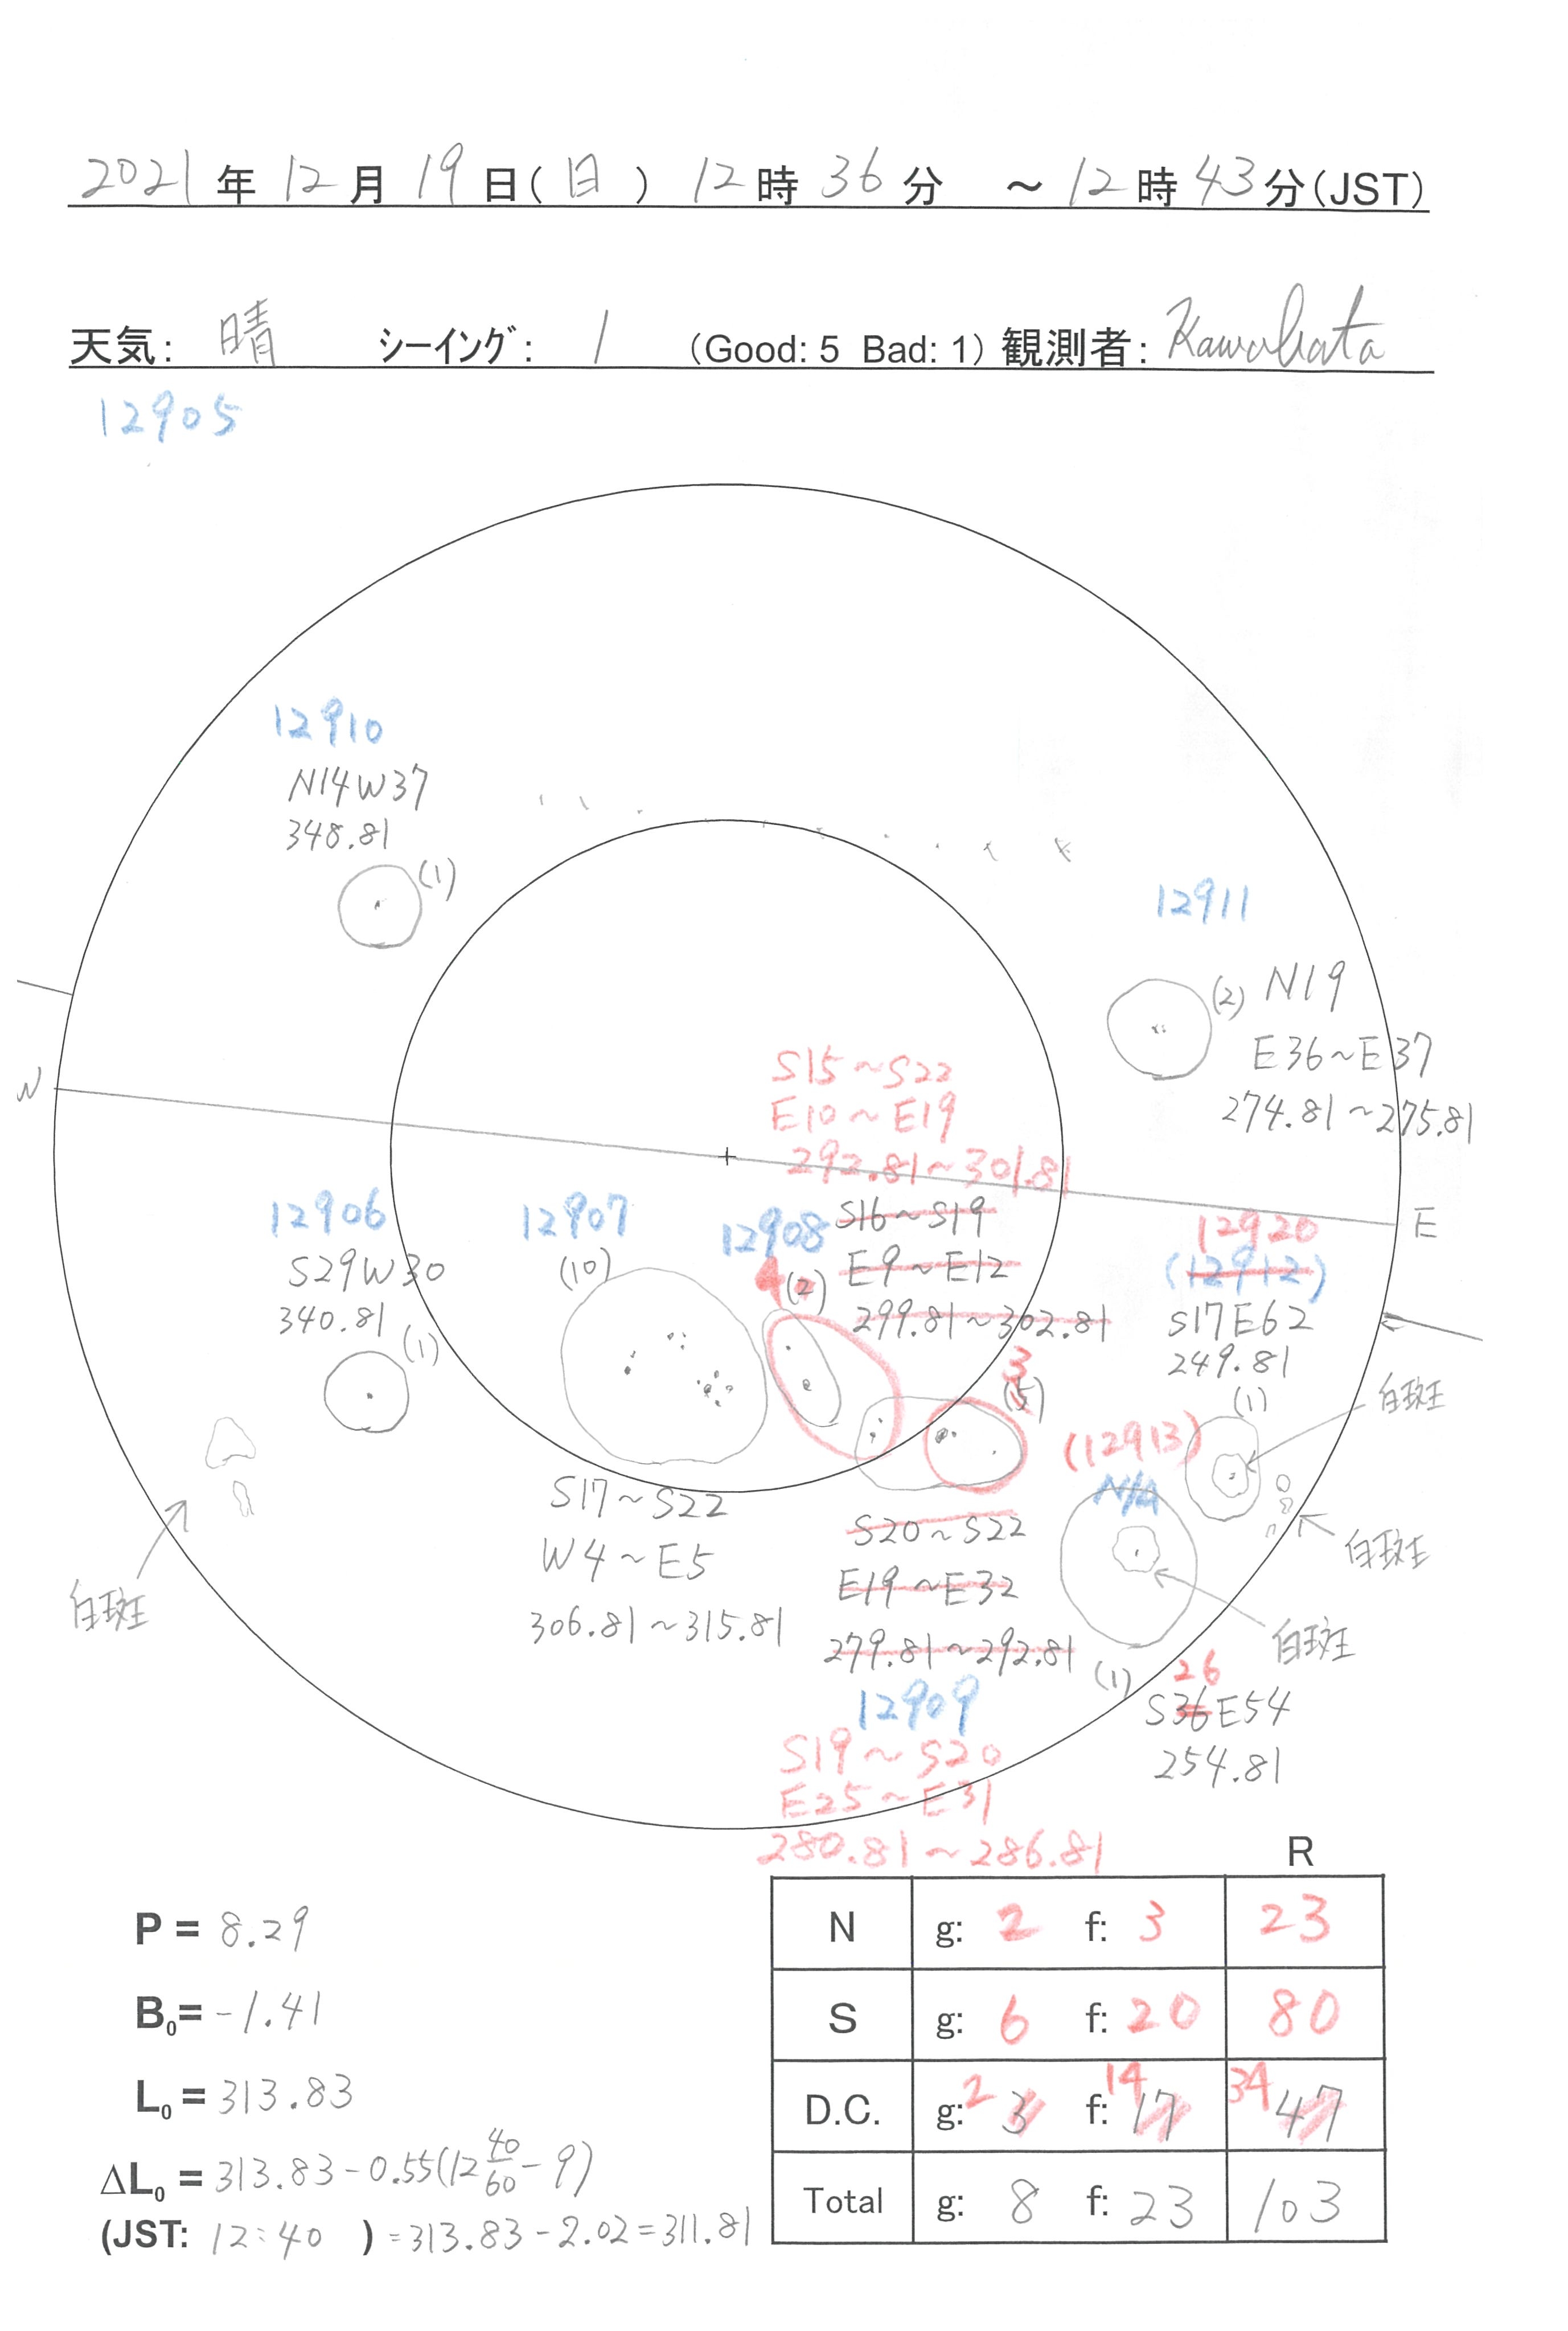 2021年12月19日(日) 12時36分 ～12時43分(JST)
天気: 晴 シーイング: 1 (Good: 5 Bad: 1) 観測者: Kawabata
12905
12910
N14W37
348.81
(1)
12911
(2) N19
E36～E37
274.81～275.81
N
S15～S22
E10～E19
292.81～301.81
E
12906
S29W30
340.81
(1)
12907
(10)
12908
4 (2)
S16～S19
E9～E12
299.81～302.81
12920
(12912)
S17E62
249.81
(1)
白斑
3
(5)
(12913)
N/A
白斑
白斑
S17～S22
W4～E5
306.81～315.81
S20～S22
E19～E32
279.81～292.81
12909
S19～S20
E25～E31
280.81～286.81
白斑
(1)
26
S36E54
254.81
R
N g: 2 f: 3 23
S g: 6 f: 20 80
D.C. g: 2 3 f: 14 17 34 47
Total g: 8 f: 23 103
P = 8.29
B₀= -1.41
L₀ = 313.83
ΔL₀ = 313.83 - 0.55(12 40/60 - 9)
(JST: 12:40 ) = 313.83 - 2.02 = 311.81